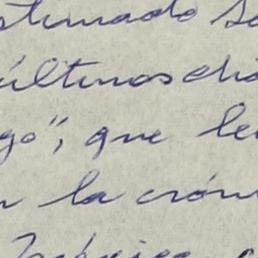 stimado Se
últimos día
go", que le
n la crón